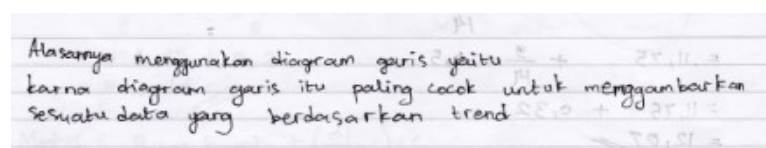 Alasannya menggunakan diagram garis yaitu
karna diagram garis itu paling cocok untuk menggambarkan
sesuatu data yang berdasarkan trend